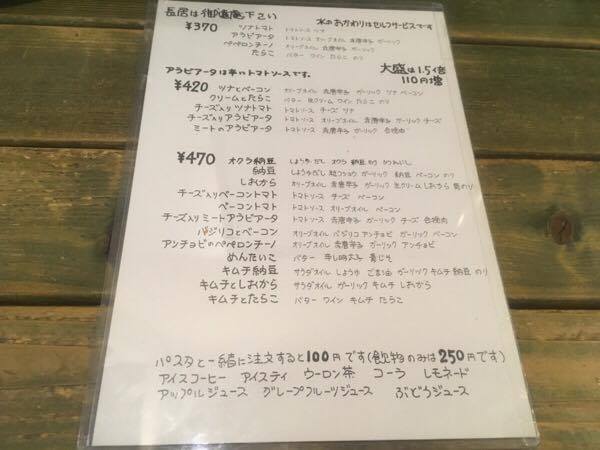 長居は御遠慮下さい 水のおかわりはセルフサービスです
¥370 ツナトマト トマトソース ツナ
アラビアータ トマトソース オリーブオイル 赤唐辛子 ガーリック
ペペロンチーノ オリーブオイル 赤唐辛子 ガーリック
たらこ バター ワイン たらこ のり
アラビアータは辛いトマトソースです。 大盛は1.5倍 110円増
¥420 ツナとベーコン オリーブオイル 赤唐辛子 ガーリック ツナ ベーコン
クリームとたらこ バター 生クリーム ワイン たらこ のり
チーズ入りツナトマト トマトソース チーズ ツナ
チーズ入りアラビアータ トマトソース オリーブオイル 赤唐辛子 ガーリック チーズ
ミートのアラビアータ トマトソース オリーブオイル 赤唐辛子 ガーリック 合挽肉
¥470 オクラ納豆 しょうゆ だし オクラ 納豆 のり
納豆 しょうゆ だし 粒コショウ ガーリック 納豆 ベーコン のり
しおから オリーブオイル 赤唐辛子 ガーリック 生クリーム しおから 青のり
チーズ入りベーコントマト トマトソース チーズ ベーコン
ベーコントマト トマトソース オリーブオイル ベーコン
チーズ入りミートアラビアータ トマトソース 赤唐辛子 ガーリック チーズ 合挽肉
バジリコとベーコン オリーブオイル バジリコ アンチョビ ガーリック ベーコン
アンチョビのペペロンチーノ オリーブオイル 赤唐辛子 ガーリック アンチョビ
めんたいこ バター 辛し明太子 青じそ
キムチ納豆 サラダオイル しょうゆ ごま油 ガーリック キムチ 納豆 のり
キムチとしおから サラダオイル ガーリック キムチ しおから
キムチとたらこ バター ワイン キムチ たらこ
パスタと一緒に注文すると100円です(飲物のみは250円です)
アイスコーヒー アイスティ ウーロン茶 コーラ レモネード
アップルジュース グレープフルーツジュース ぶどうジュース